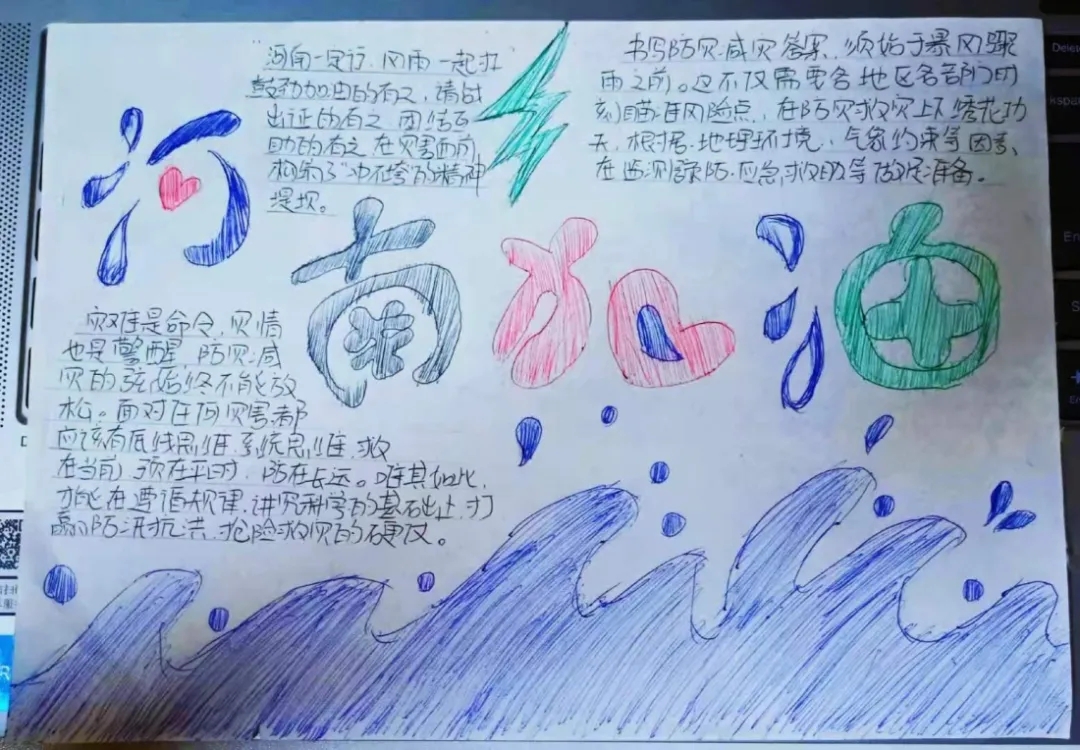 "河南一定行,风雨一起扛"
鼓劲加油的有之,请战
出证的有之,团结互
助的有之,在灾害面前,
构筑了"冲不垮"的精神
堤坝。
书写防灾减灾答案,须始于暴风骤
雨之前。这不仅需要各地区各部门时
刻瞄准风险点,在防灾救灾上下绣花功
夫,根据地理环境、气象约束等因素、
在监测预防、应急救助等做足准备。
河南加油
灾难是命令,灾情
也是警醒,防灾减
灾的弦始终不能放
松。面对任何灾害都
应该有底线思维、系统思维,救
在当前,预在平时,防在长远。唯其如此,
才能在遵循规律、讲究科学的基础上,打
赢防汛抗洪、抢险救灾的硬仗。
Delete
kspa
En